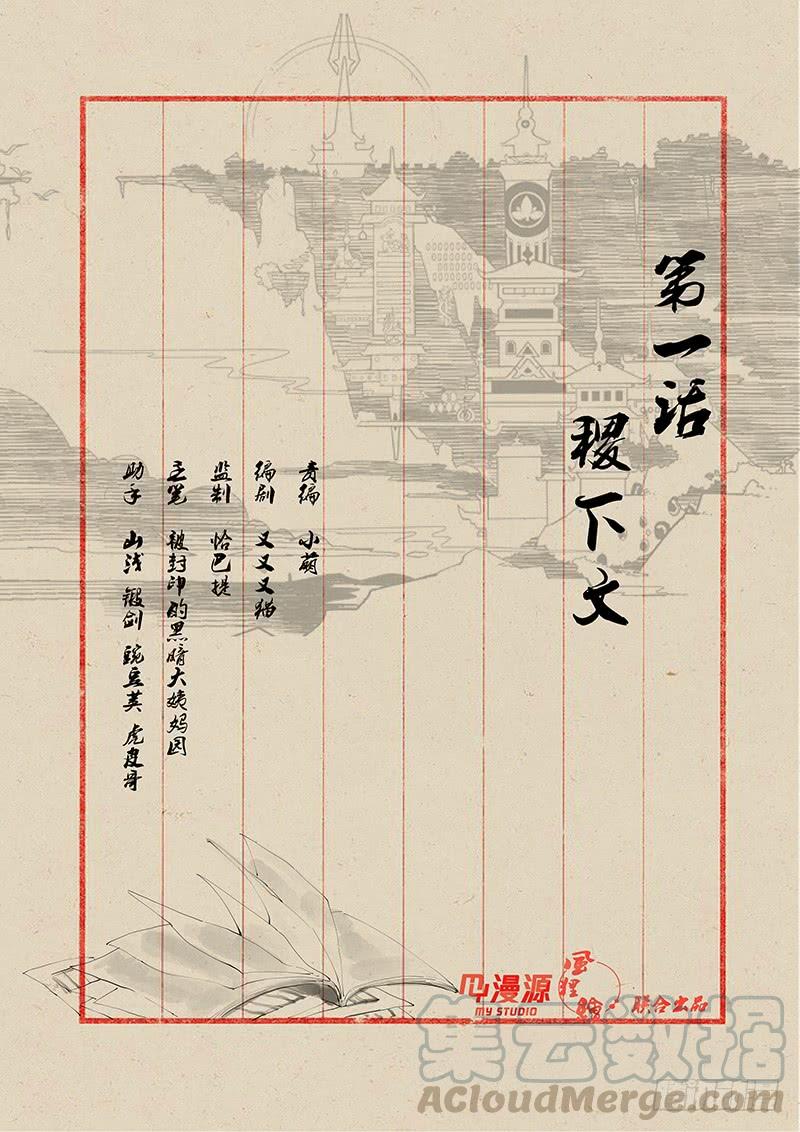 第一话
稷下文
责编 小萌
编剧 又又又猫
监制 恰巴提
主笔 被封印的黑暗大姨妈园
助手 山浅 锻剑 豌豆荚 虎皮哥
漫源
MY STUDIO
风狸
联合出品
集云数据
ACloudMerge.com